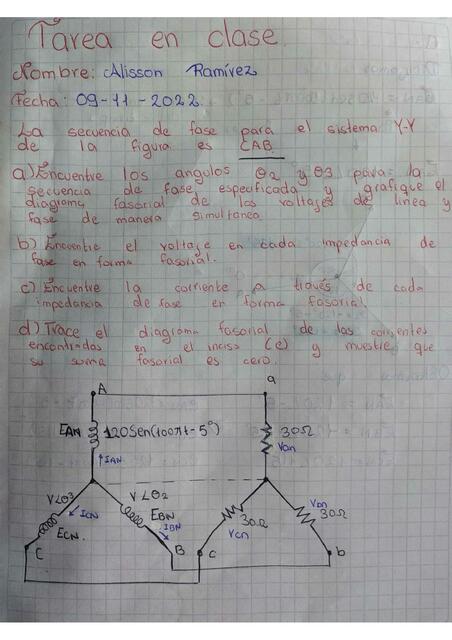 Tarea en clase.
Nombre: Alisson Ramírez
Fecha: 09-11-2022.
La secuencia de fase para el sistema Y-Y
de la figura es CAB.
a) Encuentre los angulos θ2 y θ3 para la
secuencia de fase especificada y grafique el
diagrama fasorial de los voltajes de linea y
fase de manera simultanea
b) Encuentre el voltaje en cada impedancia de
fase en forma fasorial.
c) Encuentre la corriente a través de cada
impedancia de fase en forma fasorial.
d) Trace el diagrama fasorial de las corrientes
encontradas en el inciso (c) y muestre que
su suma fasorial es cero.
A
a
EAN
120Sen(100πt-5°)
30Ω
Van
IAN
V∠θ3
V∠θ2
ICN
EBN
IBN
ECN.
30Ω
Vcn
Vbn
30Ω
C
B
c
b